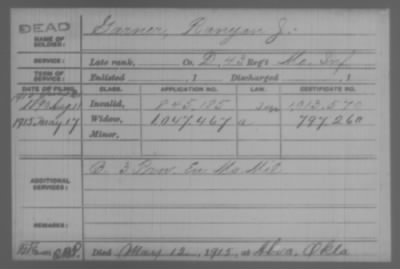 DEAD
NAME OF SOLDIER: Garner, Runyon J.
SERVICE: Late rank, Co. D, 43 Reg't Mo. Inf.
TERM OF SERVICE: Enlisted , 1 Discharged , 1
DATE OF FILING. CLASS. APPLICATION NO. LAW. CERTIFICATE NO.
1890 Invalid, 845,185 1,013,570
1915 May 17 Widow, 1,047,467 a 797,260
Minor,
ADDITIONAL SERVICES: B. 3 Prov. En. Mo. Mil.
REMARKS:
Died May 12, 1915, at Alva, Okla